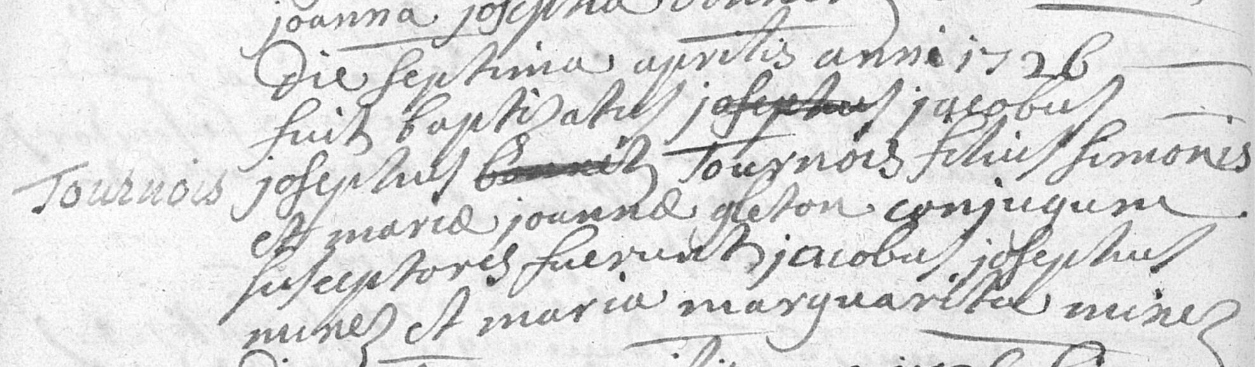 joanna josepha
Die septima aprilis anni 1726
fuit baptisatus josephus jacobus
Tournois
josephus Tournois filius simonis
et mariæ joannæ gleton conjugum
susceptores fuerunt jacobus josephus
minez et maria marguarita minez